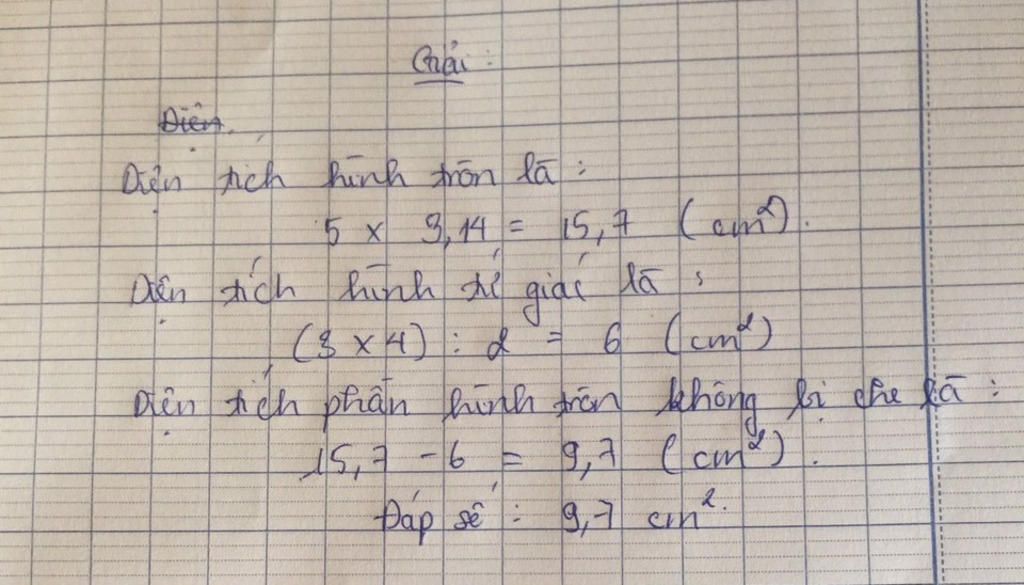 Giải:
Diện
Diện tích hình tròn là:
5 x 3,14 = 15,7 (cm²).
Diện tích hình tứ giác là:
(3 x 4) : 2 = 6 (cm²)
Diện tích phần hình tròn không bị che là:
15,7 - 6 = 9,7 (cm²).
Đáp số: 9,7 cm².